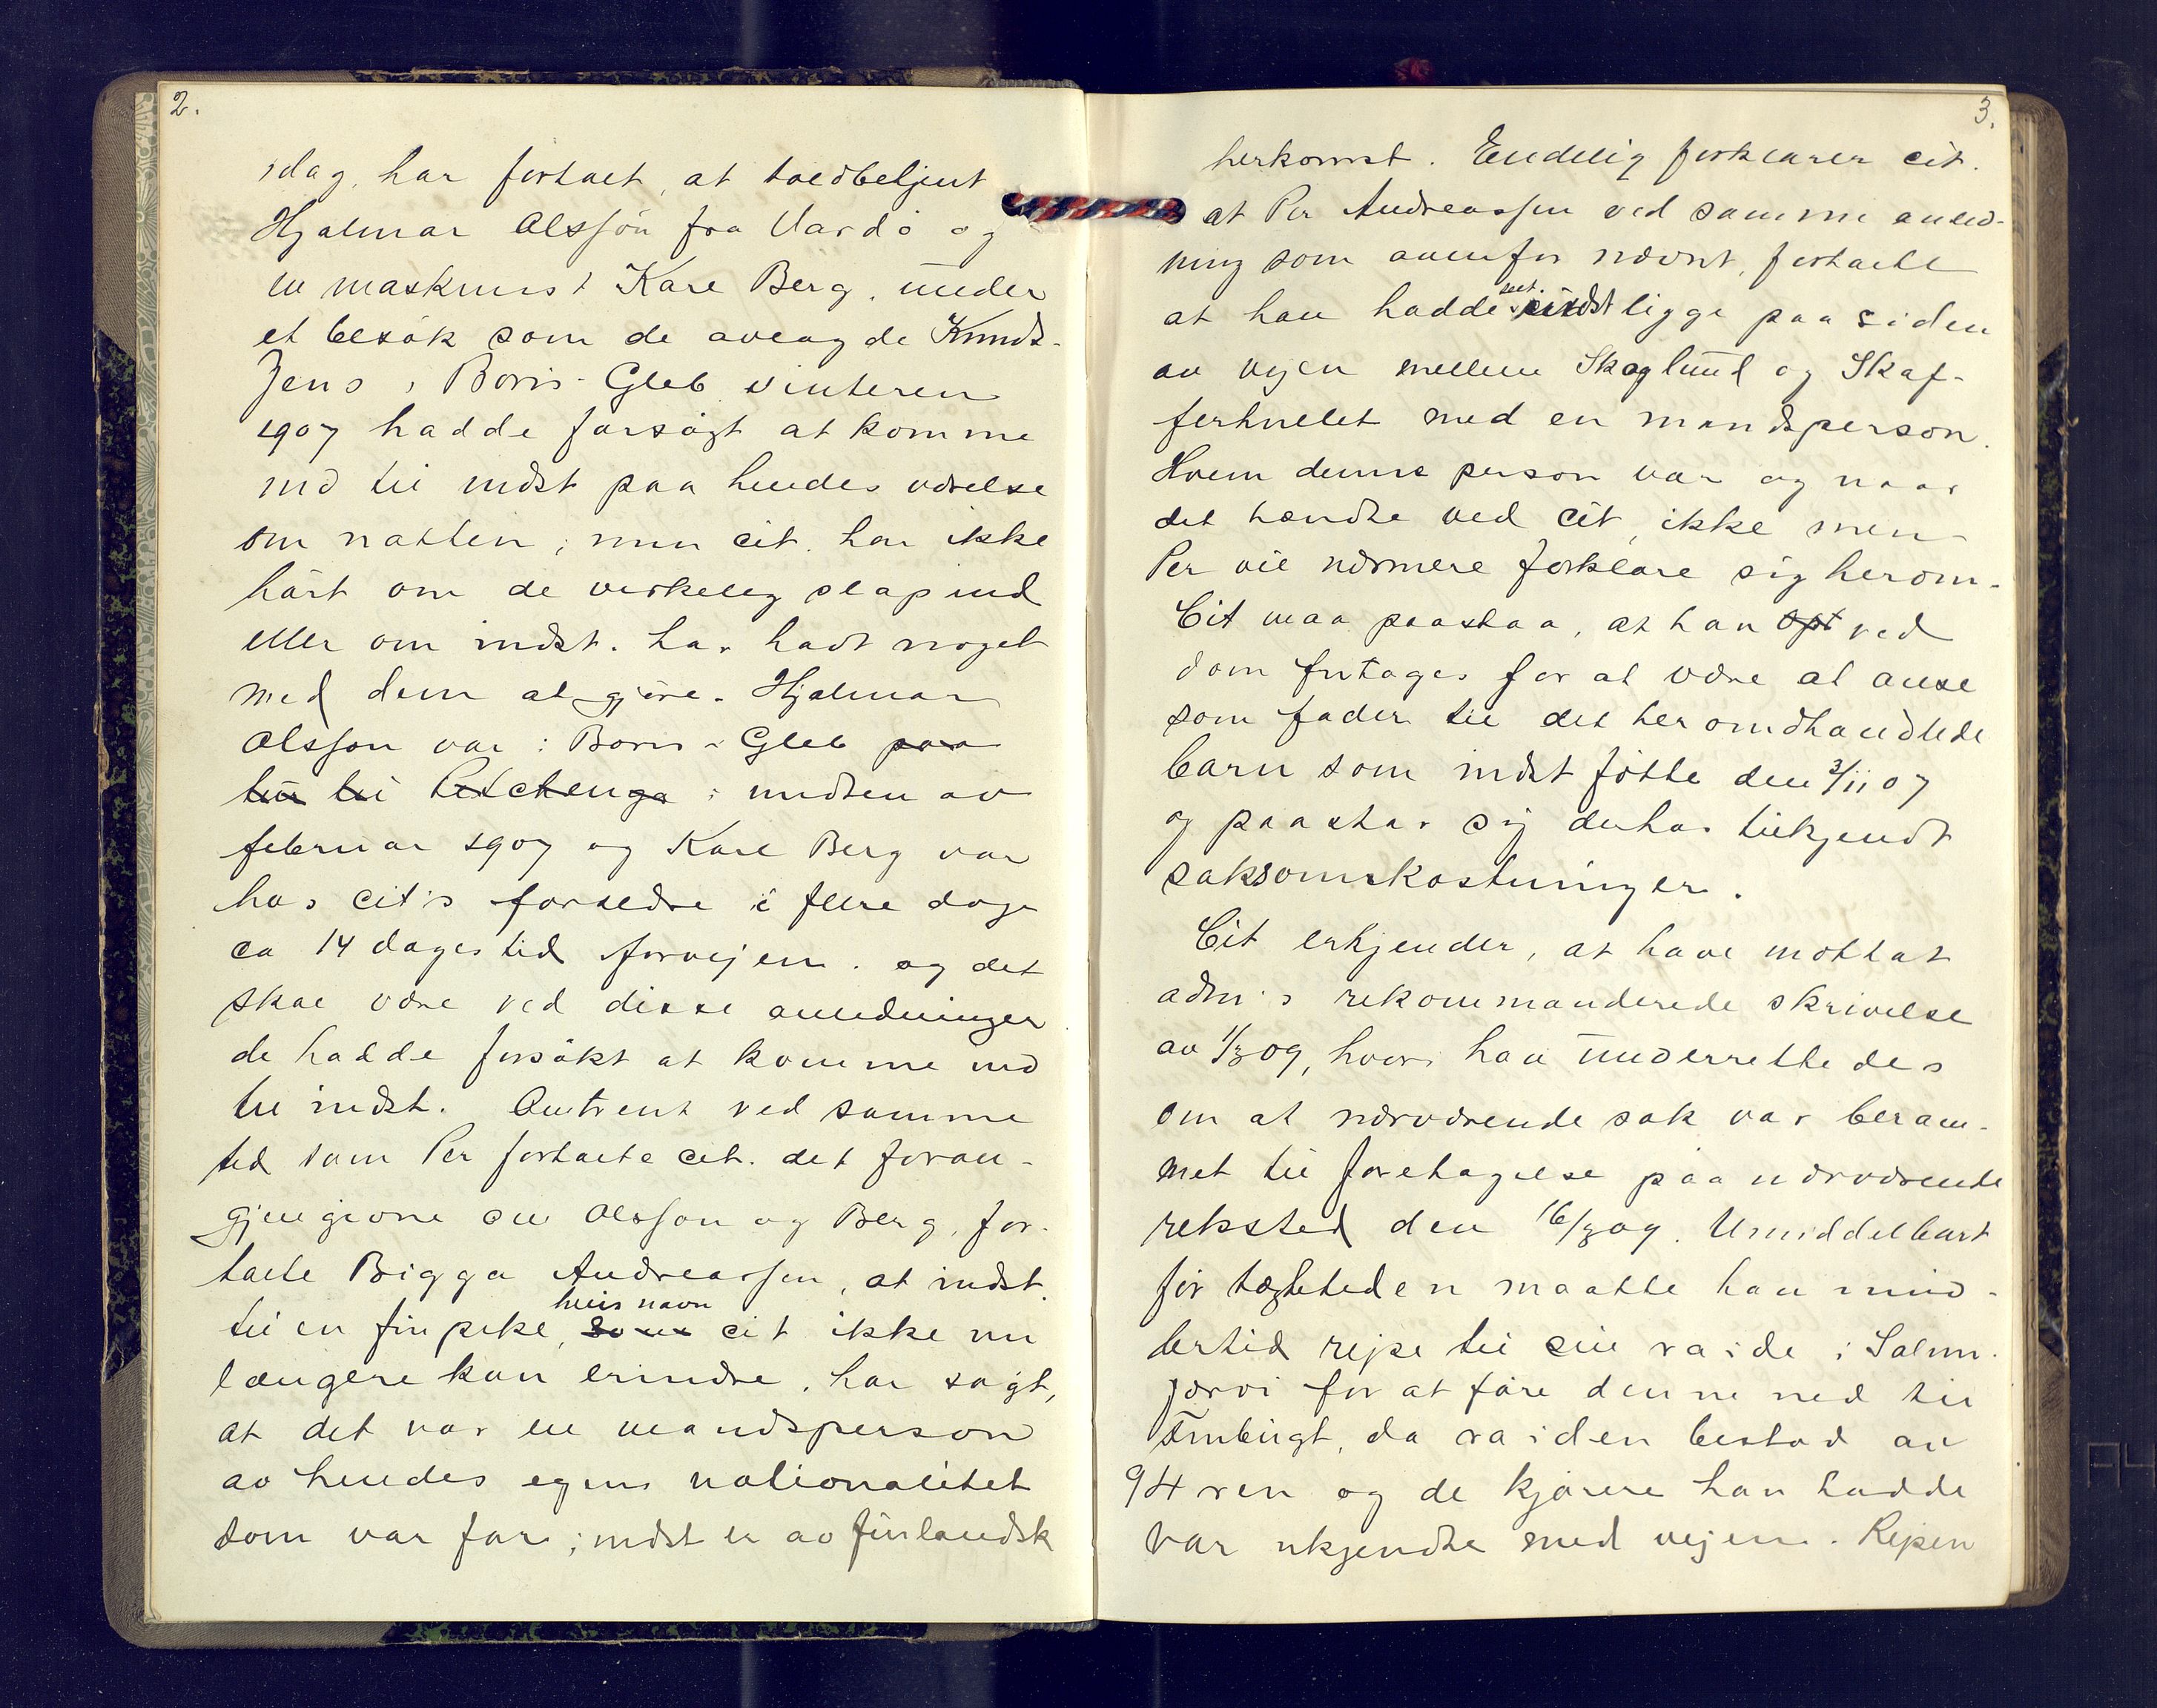 2.
idag, har fortalt, at toldbetjent
Hjalmar Olssøn fra Vardø og
en maskinist Kare Berg, under
et besøk som de avlagde
Jens i Boris-Gleb vinteren
1907 hadde forsøgt at komme
ind til indst paa hendes værelse
om natten; men cit. har ikke
hørt om de virkelig slap ind
eller om indst. har hadt noget
med dem at gjøre. Hjalmar
Olsson var i Boris-Gleb paa
tur til Petchenga i midten av
februar 1907 og Kare Berg var
hos cit's forældre i flere dage
ca 14 dages tid forvejen. og det
skal være ved disse anledninger
de hadde forsøkt at komme ind
til indst. Omtrent ved samme
tid som Per fortalte cit. det foran-
gjengivne om Olsson og Berg, for-
talte Bigga Andreassen, at indst.
til en finpike, hvis navn som cit ikke nu
længere kan erindre, har sagt,
at det var en mandsperson
av hendes egen nationalitet
som var far; indst er av finlandsk
3.
herkomst. Endelig forklarer cit.
at Per Andreassen ved samme anled-
ning som ovenfor nævnt, fortalte
at han hadde seet indst ligge paa siden
av vejen mellem Skoglund og Skaf-
ferhullet med en mandsperson.
Hvem denne person var og naar
det hændte ved cit, ikke men
Per vil nærmere forklare sig herom.
Cit maa paastaa, at han opt ved
dom fritages for at være at anse
som fader til det her omhandlede
barn som indst fødte den 3/11 07
og paastar sig derhos tilkjendt
saksomkostninger.
Cit erkjender, at have mottat
adm's rekommanderede skrivelse
av 1/3 09, hvori han underrettedes
om at nærværende sak var beram-
met til foretagelse paa nærværende
retssted den 16/3 09. Umiddelbart
før tægteteden maatte han imid-
lertid rejse til sin raide i Salmi-
järvi for at føre denne ned til
Strømbugt, da raiden bestod av
94 ren og de kjørere han hadde
var ukjendte med vejen. Rejsen